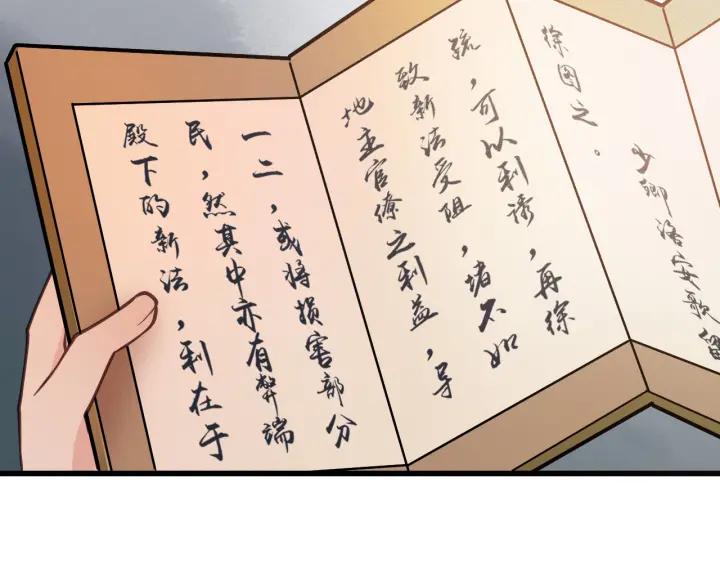 殿下的新法，利在于
民，然其中亦有弊端
一二，或将损害部分
地主官僚之利益，导
致新法受阻，堵不如
疏，可以利诱，再徐
徐图之。
少卿洛安歌留